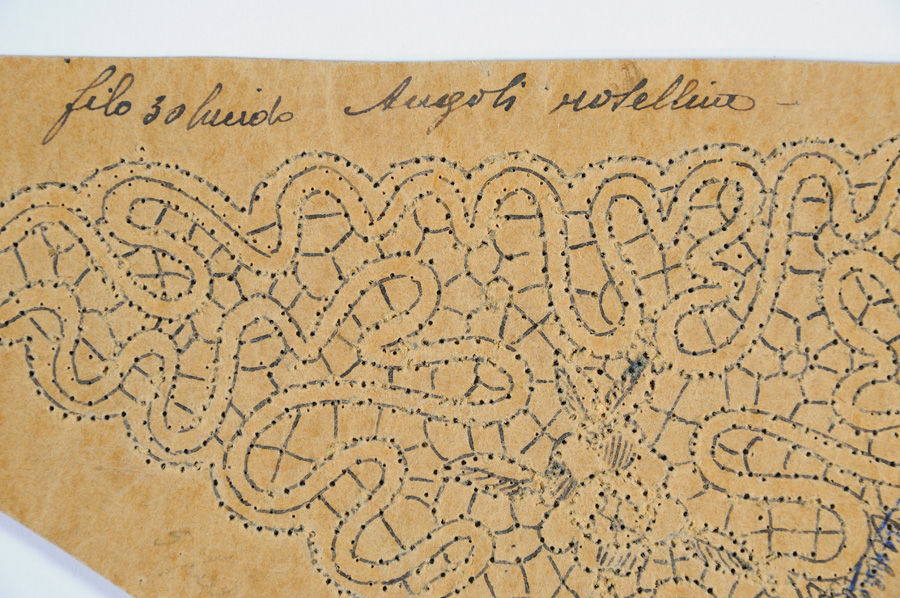 filo 30 lucido Angoli rosellina -